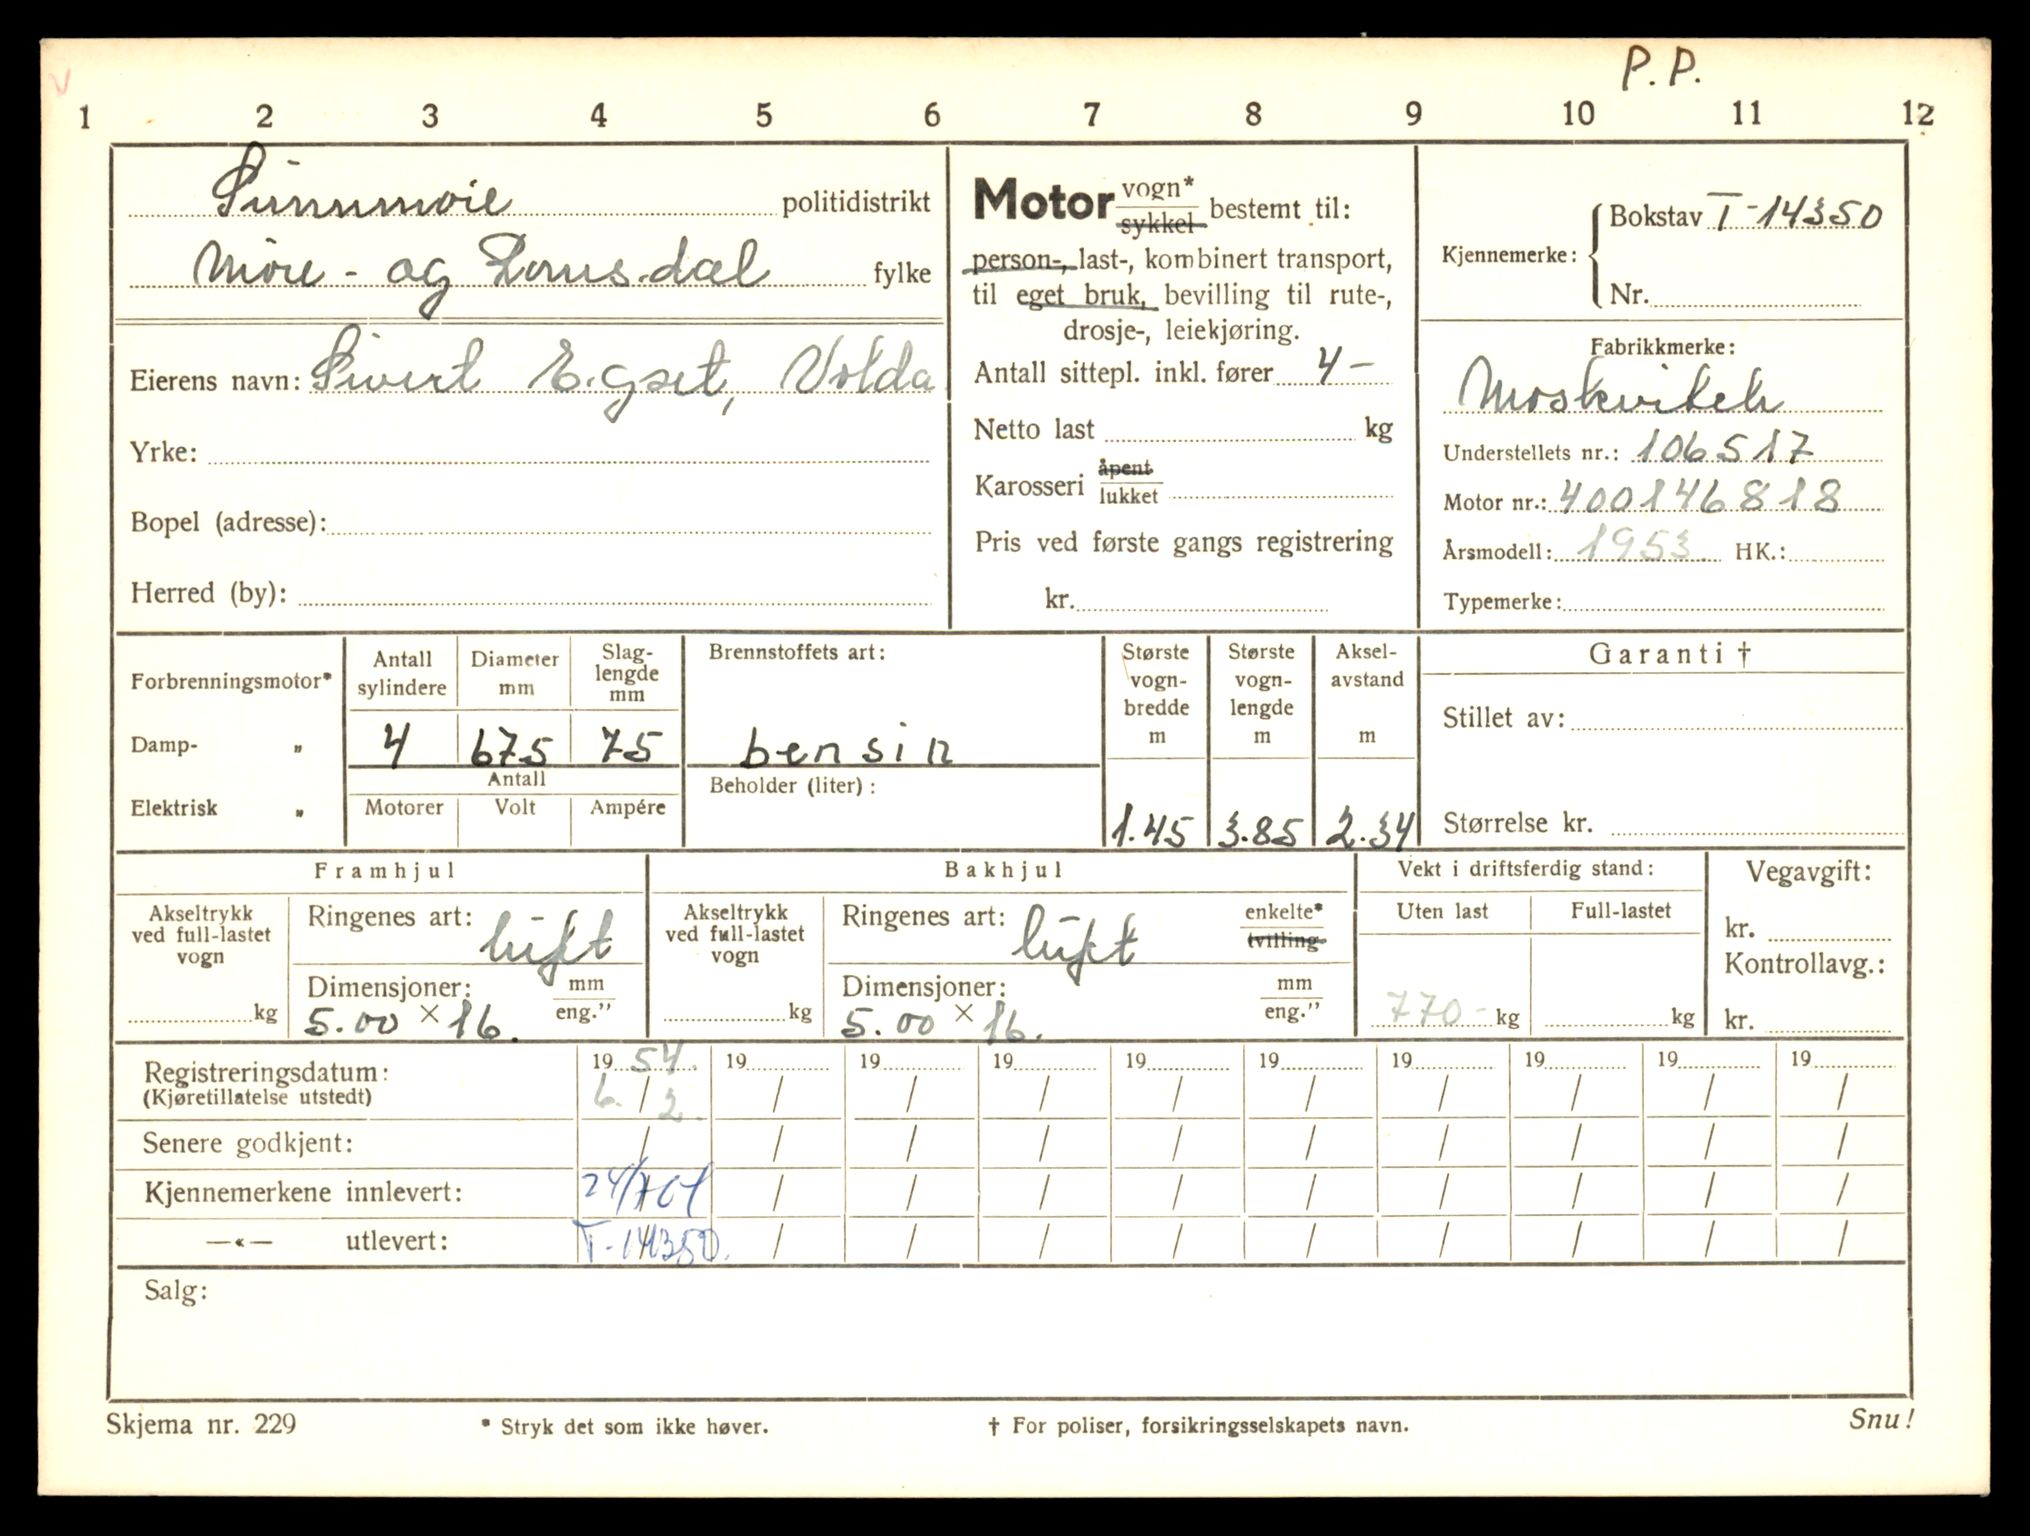 P. P.
1 2 3 4 5 6 7 8 9 10 11 12
Sunnmøre politidistrikt
Møre - og Romsdal fylke
Eierens navn: Sivert E. gset, Volda
Yrke:
Bopel (adresse):
Herred (by):
Motor vogn* sykkel bestemt til:
person-, last-, kombinert transport,
til eget bruk, bevilling til rute-,
drosje-, leiekjøring.
Antall sittepl. inkl. fører 4 -
Netto last kg
Karosseri åpent lukket
Pris ved første gangs registrering
kr.
Kjennemerke: Bokstav T-14350
Nr.
Fabrikkmerke:
Moskvitch
Understellets nr.: 106517
Motor nr.: 400146818
Årsmodell: 1953. HK.:
Typemerke:
Forbrenningsmotor*
Damp- „
Elektrisk „
Antall sylindere
Diameter mm
Slag-lengde mm
4 675 75
Antall
Motorer Volt Ampére
Brennstoffets art:
bensin
Beholder (liter):
Største vogn-bredde m
1.45
Største vogn-lengde m
3.85
Aksel-avstand m
2.34
Garanti †
Stillet av:
Størrelse kr.
Framhjul
Akseltrykk ved full-lastet vogn
kg
Ringenes art: luft
Dimensjoner: mm eng."
5.00 × 16.
Bakhjul
Akseltrykk ved full-lastet vogn
kg
Ringenes art: luft enkelte* tvilling-
Dimensjoner: mm eng."
5.00 × 16.
Vekt i driftsferdig stand:
Uten last Full-lastet
770 - kg kg
Vegavgift:
kr.
Kontrollavg.:
kr.
Registreringsdatum: 19 54. 19 19 19 19 19 19 19 19 19
(Kjøretillatelse utstedt) 6. / 2. / / / / / / / / /
Senere godkjent: / / / / / / / / / /
Kjennemerkene innlevert: 24/7 / / / / / / / / /
—«— utlevert: T-14350. / / / / / / / / /
Salg:
Skjema nr. 229 * Stryk det som ikke høver. † For poliser, forsikringsselskapets navn. Snu!